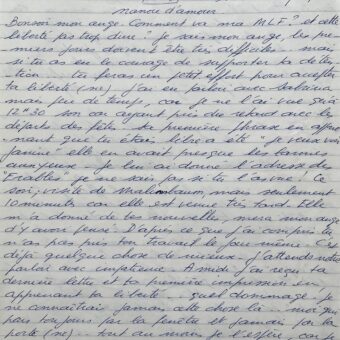 nanou d'amour
Bonsoir mon ange. Comment va ma M.L.F? et cette
liberté pas trop dure? je sais mon ange, les pre-
miers jours doivent être très difficiles.. mais
si tu as eu le courage de supporter ta déten-
tion tu feras un petit effort pour accepter
ta liberté (ne). j'ai en parlant avec Sabrina
mais peu de temps, car je ne l'ai vue qu'à
12h30 son car ayant pris du retard avec les
départs des fêtes. Sa première phrase en appre-
nant que tu étais libre a été "je veux voir
Janine" elle en avait presque les larmes
aux yeux je lui ai donné l'adresse des
"Erables" je ne sais pas si tu l'as vue! Ce
soir; visite de mais seulement
10 minutes car elle est venue très tard. Elle
m'a donné de tes nouvelles, merci mon ange
d'y avoir pensé. D'après ce que j'ai compris tu
n'as pas pris ton travail le jour même. C'est
déjà quelque chose de mieux, j'attends notre
parloir avec impatience. A midi j'ai reçu ta
dernière lettre et ta première impression en
apprenant ta liberté.. quel dommage je
ne connaîtrai jamais cette chose là.. moi qui
peu toujours par la fenêtre et jamais par la
porte (ne).. tout au moins je l'espère, car je